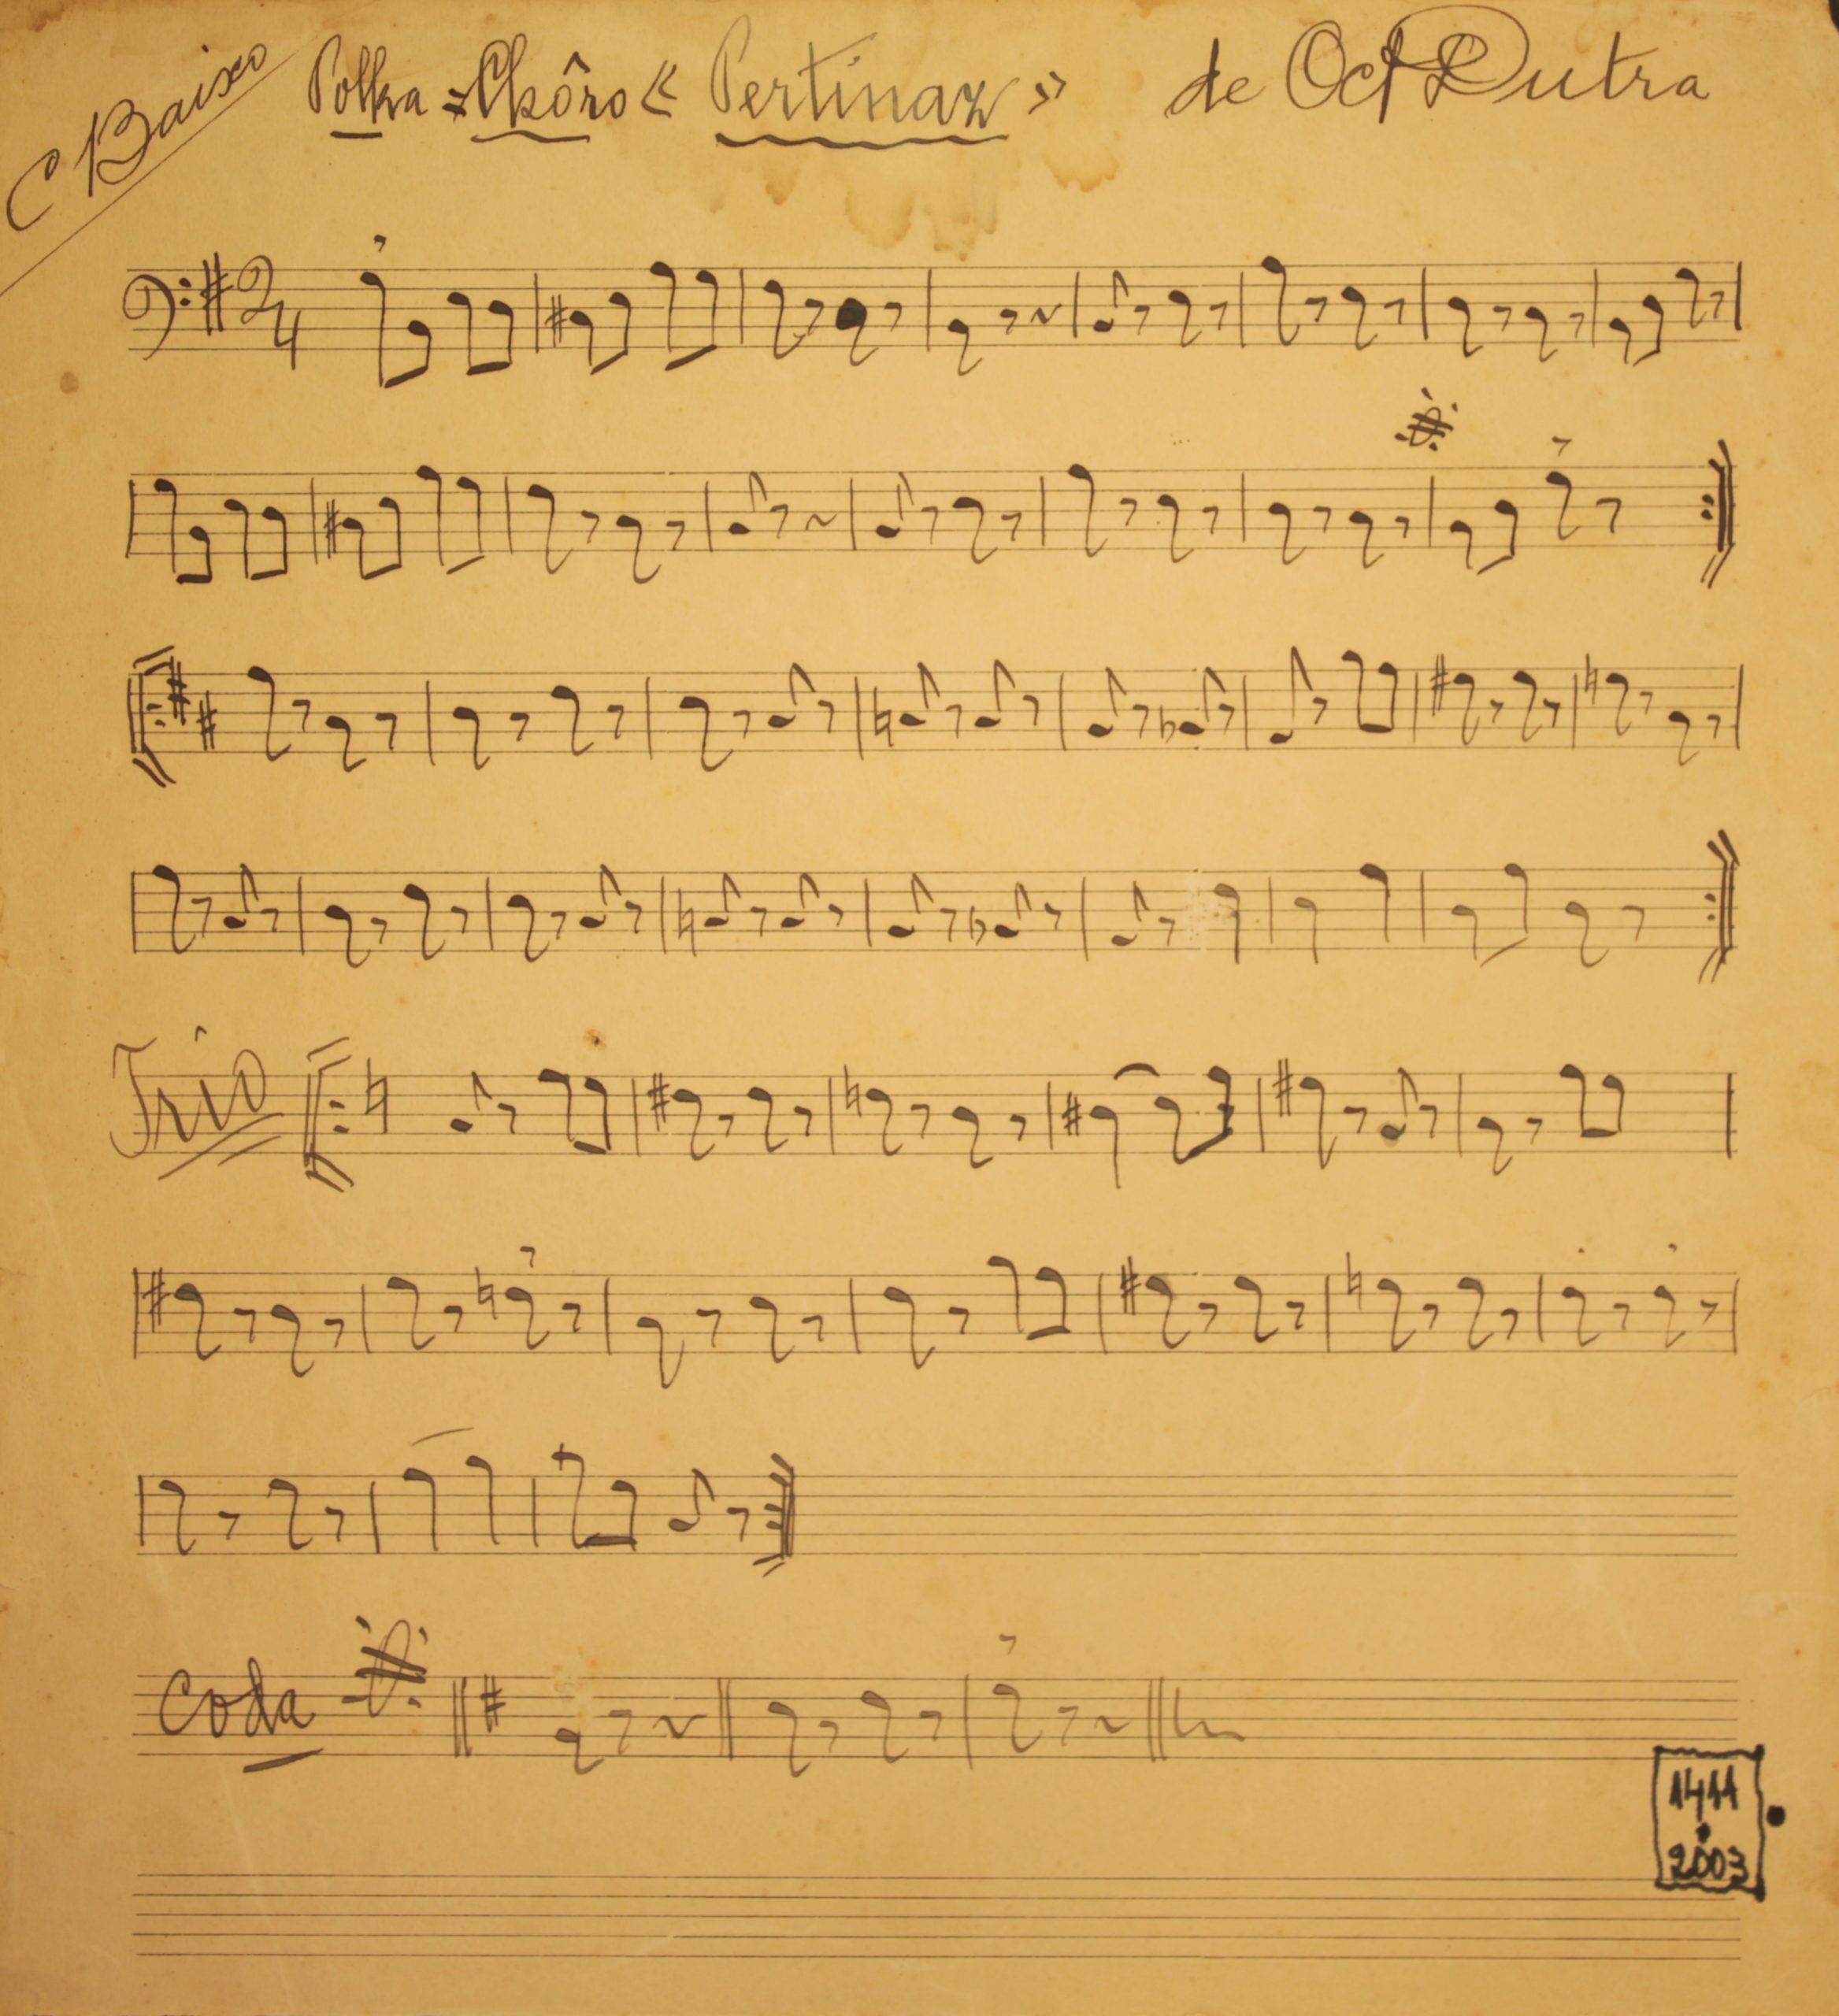 C Baixo
Polka = Chôro « Pertinaz » de Oct Dutra
2
4
Trio
Coda
1411
2003